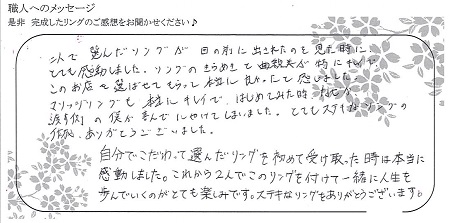 職人へのメッセージ
是非 完成したリングのご感想をお聞かせください♪
二人で選んだリングが目の前に出されたのを見た時に、
とても感動しました。リングのきらめきと曲線美が特にキレイで、
このお店で選ばせてもらって本当に良かったと感じました。
マリッジリングも本当にキレイで、はじめてみた時、
渡す側の僕が喜んでしまいました。とてもステキなリングの
作成、ありがとうございました。
自分でこだわって選んだリングを初めて受け取った時は本当に
感動しました。これから2人でこのリングを付けて一緒に人生を
歩んでいくのがとても楽しみです。ステキなリングをありがとうございます。